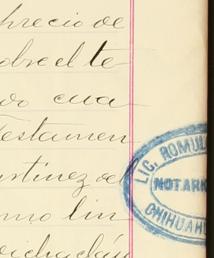 precio de
sobre el te
vo cua
Testamen
artinez de
omo lin
LIC. ROMUL
NOTARI
CHIHUAH